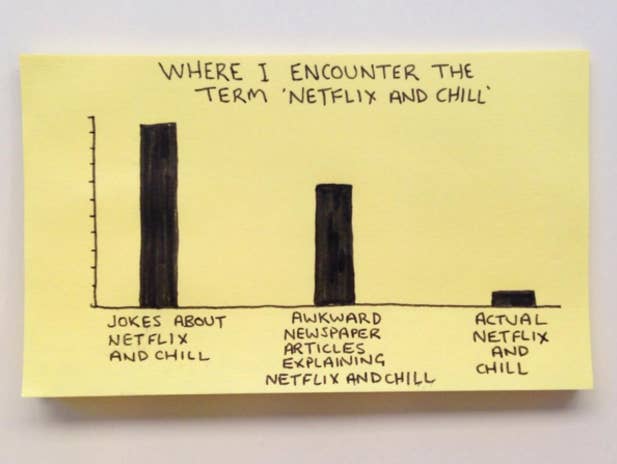 WHERE I ENCOUNTER THE
TERM 'NETFLIX AND CHILL'
JOKES ABOUT
NETFLIX
AND CHILL
AWKWARD
NEWSPAPER
ARTICLES
EXPLAINING
NETFLIX AND CHILL
ACTUAL
NETFLIX
AND
CHILL